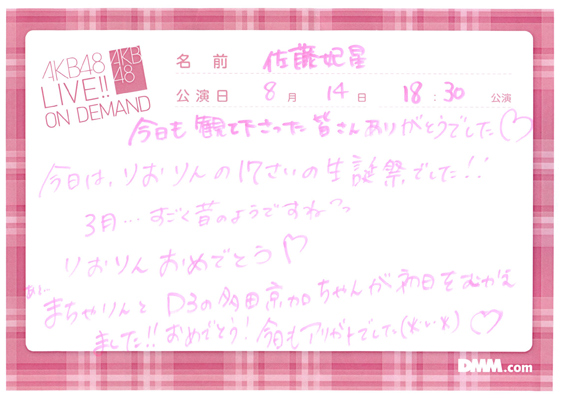 AKB48
LIVE!!
ON DEMAND
AKB
48
名前 佐藤妃星
公演日 8月 14日 18:30 公演
今日も観て下さった皆さんありがとうでした♡
今日は、りおりんの17さいの生誕祭でした!!
3月…すごく昔のようですねっっ
りおりんおめでとう♡
あと…
まちゃりんと D3の多田京加ちゃんが初日をむかえ
ました!! おめでとう! 今日もアリガトでした(*い*) ♡
DMM.com